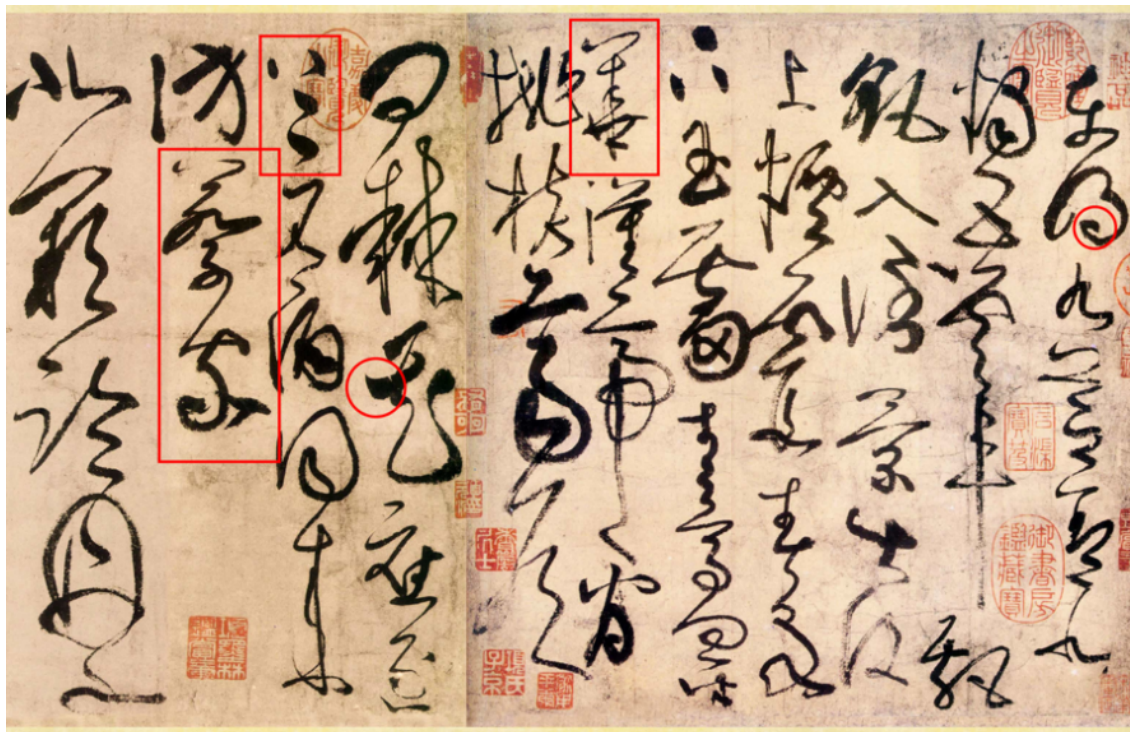 東明九芝蓋北
燭五雲車飄
飖入倒景出沒
上煙霞春泉
下玉霤青鳥向金
華漢帝看
桃核齊侯
問棘花應逐
上元酒同來
訪蔡家
北闕臨丹水